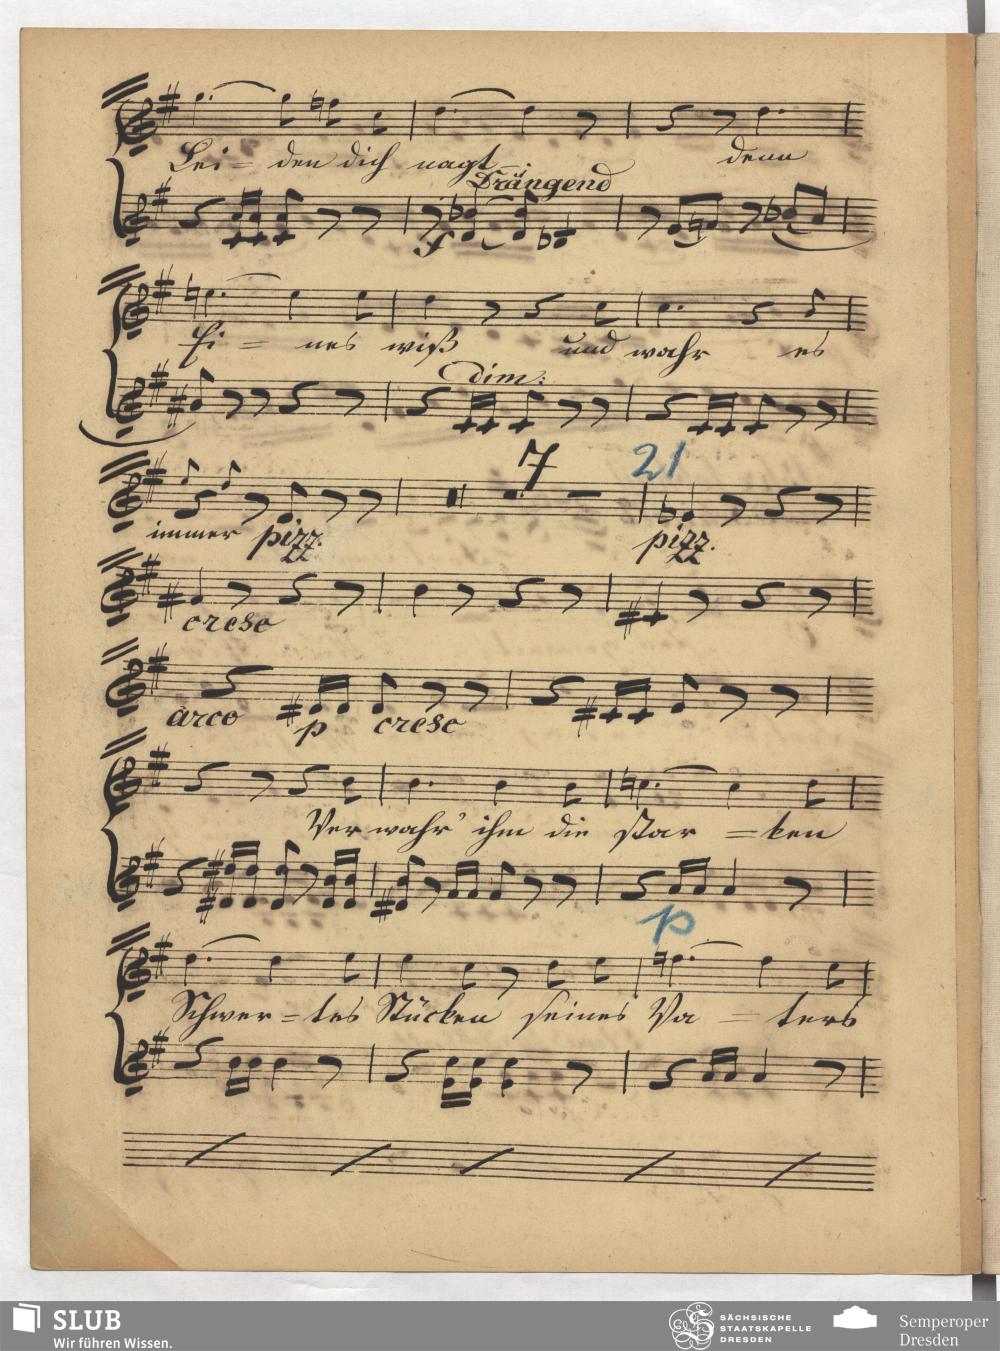 Lei = den dich nagt – denn
Drängend
f
Ei = nes wiß und wahr es
dim:
7 21
immer pizz. pizz.
cresc
arco p cresc
Ver wahr' ihm die star = ken
p
Schwer = tes Stücken seines Va = ters
SLUB
Wir führen Wissen.
SÄCHSISCHE
STAATSKAPELLE
DRESDEN
Semperoper
Dresden